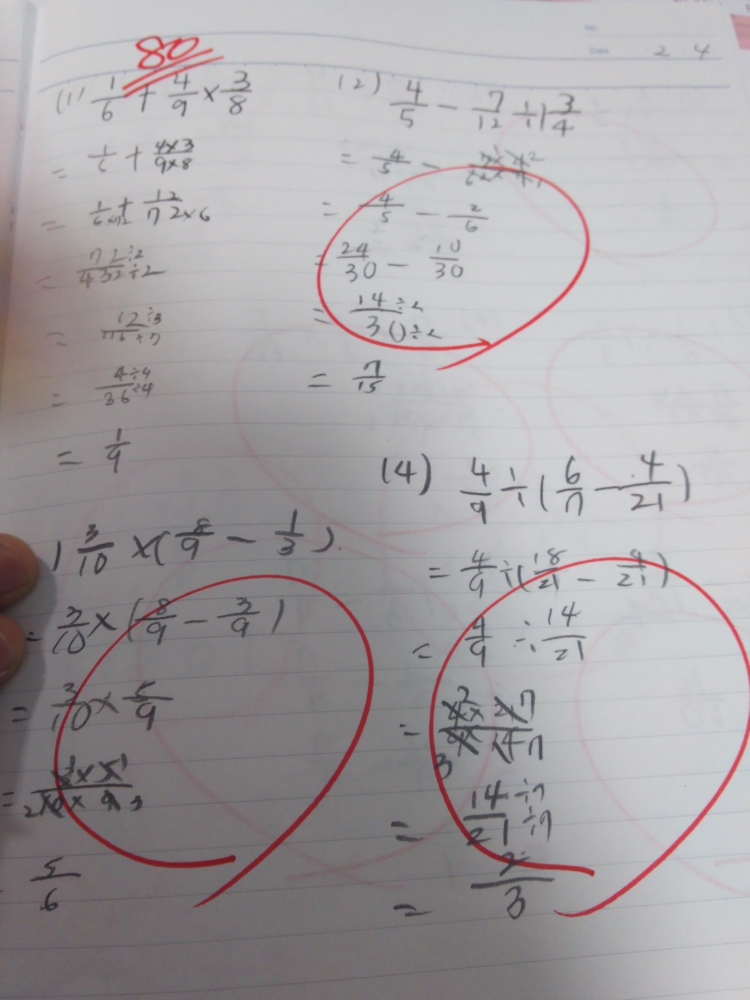 80
2 4
(1) 1/6 + 4/9 × 3/8
= 1/6 + 4×3/9×8
= 1/6×12 + 12/72×6
= 72÷2/432÷2
= 12÷3
= 4÷4/36÷4
= 1/9
(2) 4/5 − 7/12 ÷ 1 3/4
= 4/5 −
= 4/5 − 2/6
= 24/30 − 10/30
= 14÷2/30÷2
= 7/15
) 3/10 × (8/9 − 1/3).
= 3/10 × (8/9 − 3/9)
= 3/10 × 5/9
= 3 1 × 5 1/2 10 × 9 3
5/6
(4) 4/9 ÷ (6/7 − 4/21)
= 4/9 ÷ (18/21 − 4/21)
= 4/9 ÷ 14/21
= 4 2 × 21 7/3 9 × 14 7
= 14÷7/21÷7
= 2/3